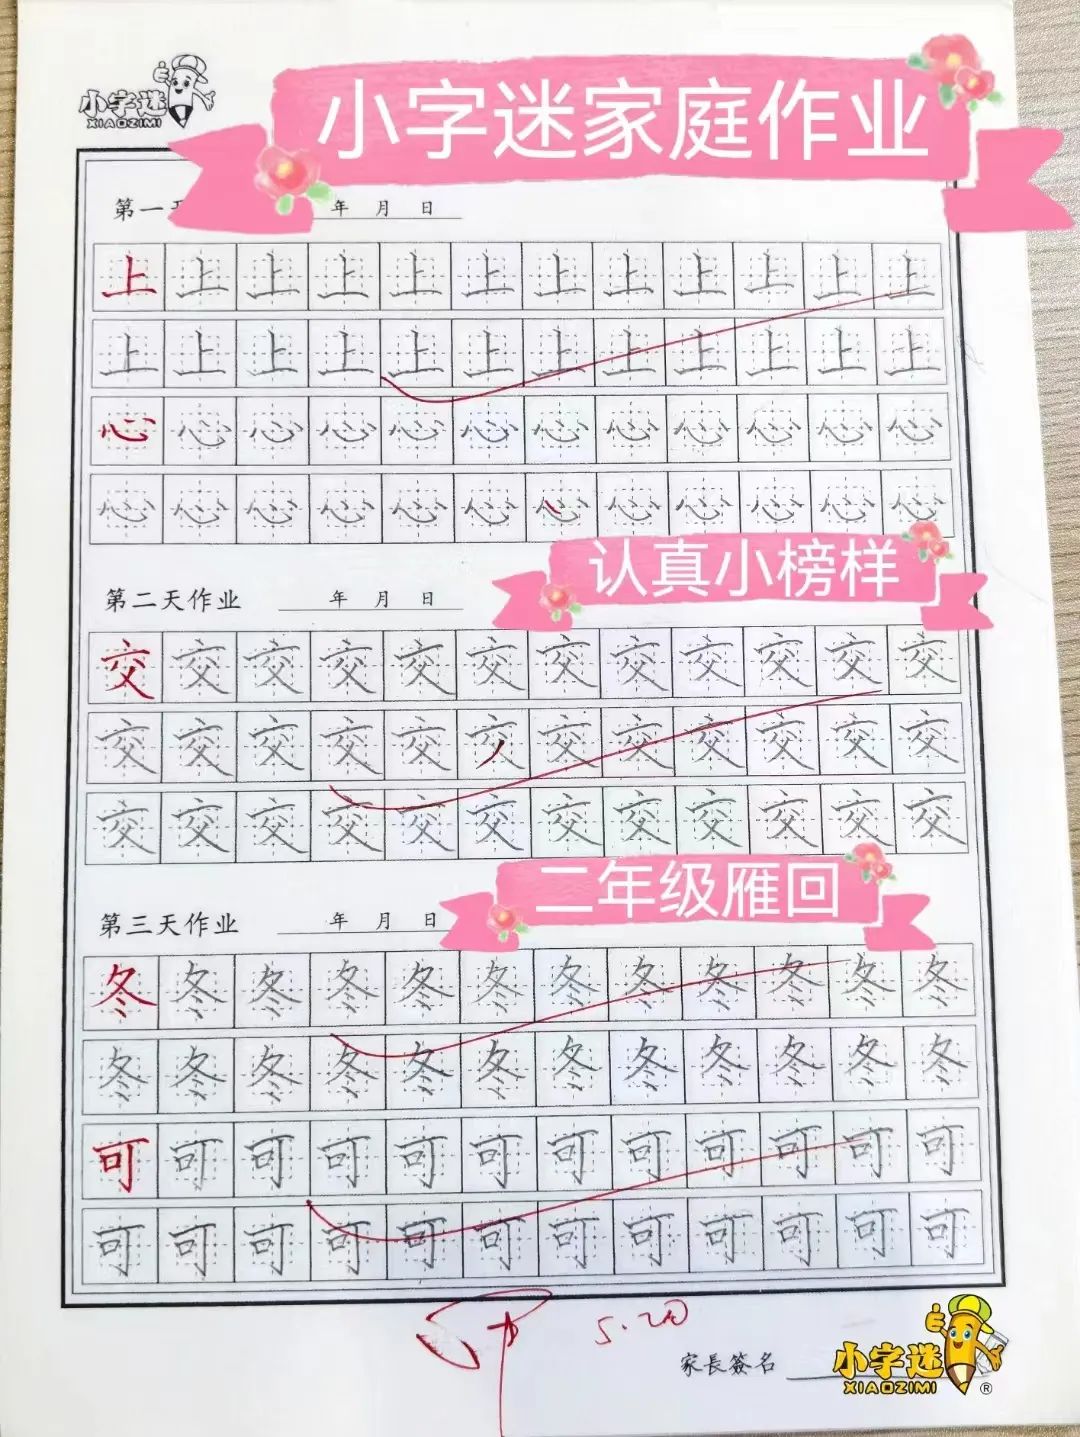 小字迷
XIAOZIMI
小字迷家庭作业
第一天 年 月 日
上 上 上 上 上 上 上 上 上 上 上 上
上 上 上 上 上 上 上 上 上 上 上 上
心 心 心 心 心 心 心 心 心 心 心 心
心 心 心 心 心 心 心 心 心 心 心 心
认真小榜样
第二天作业 年 月 日
交 交 交 交 交 交 交 交 交 交 交 交
交 交 交 交 交 交 交 交 交 交 交 交
交 交 交 交 交 交 交 交 交 交 交 交
二年级雁回
第三天作业 年 月 日
冬 冬 冬 冬 冬 冬 冬 冬 冬 冬 冬 冬
冬 冬 冬 冬 冬 冬 冬 冬 冬 冬 冬 冬
可 可 可 可 可 可 可 可 可 可 可 可
可 可 可 可 可 可 可 可 可 可 可 可
5.20
家長簽名
小字迷
XIAOZIMI®